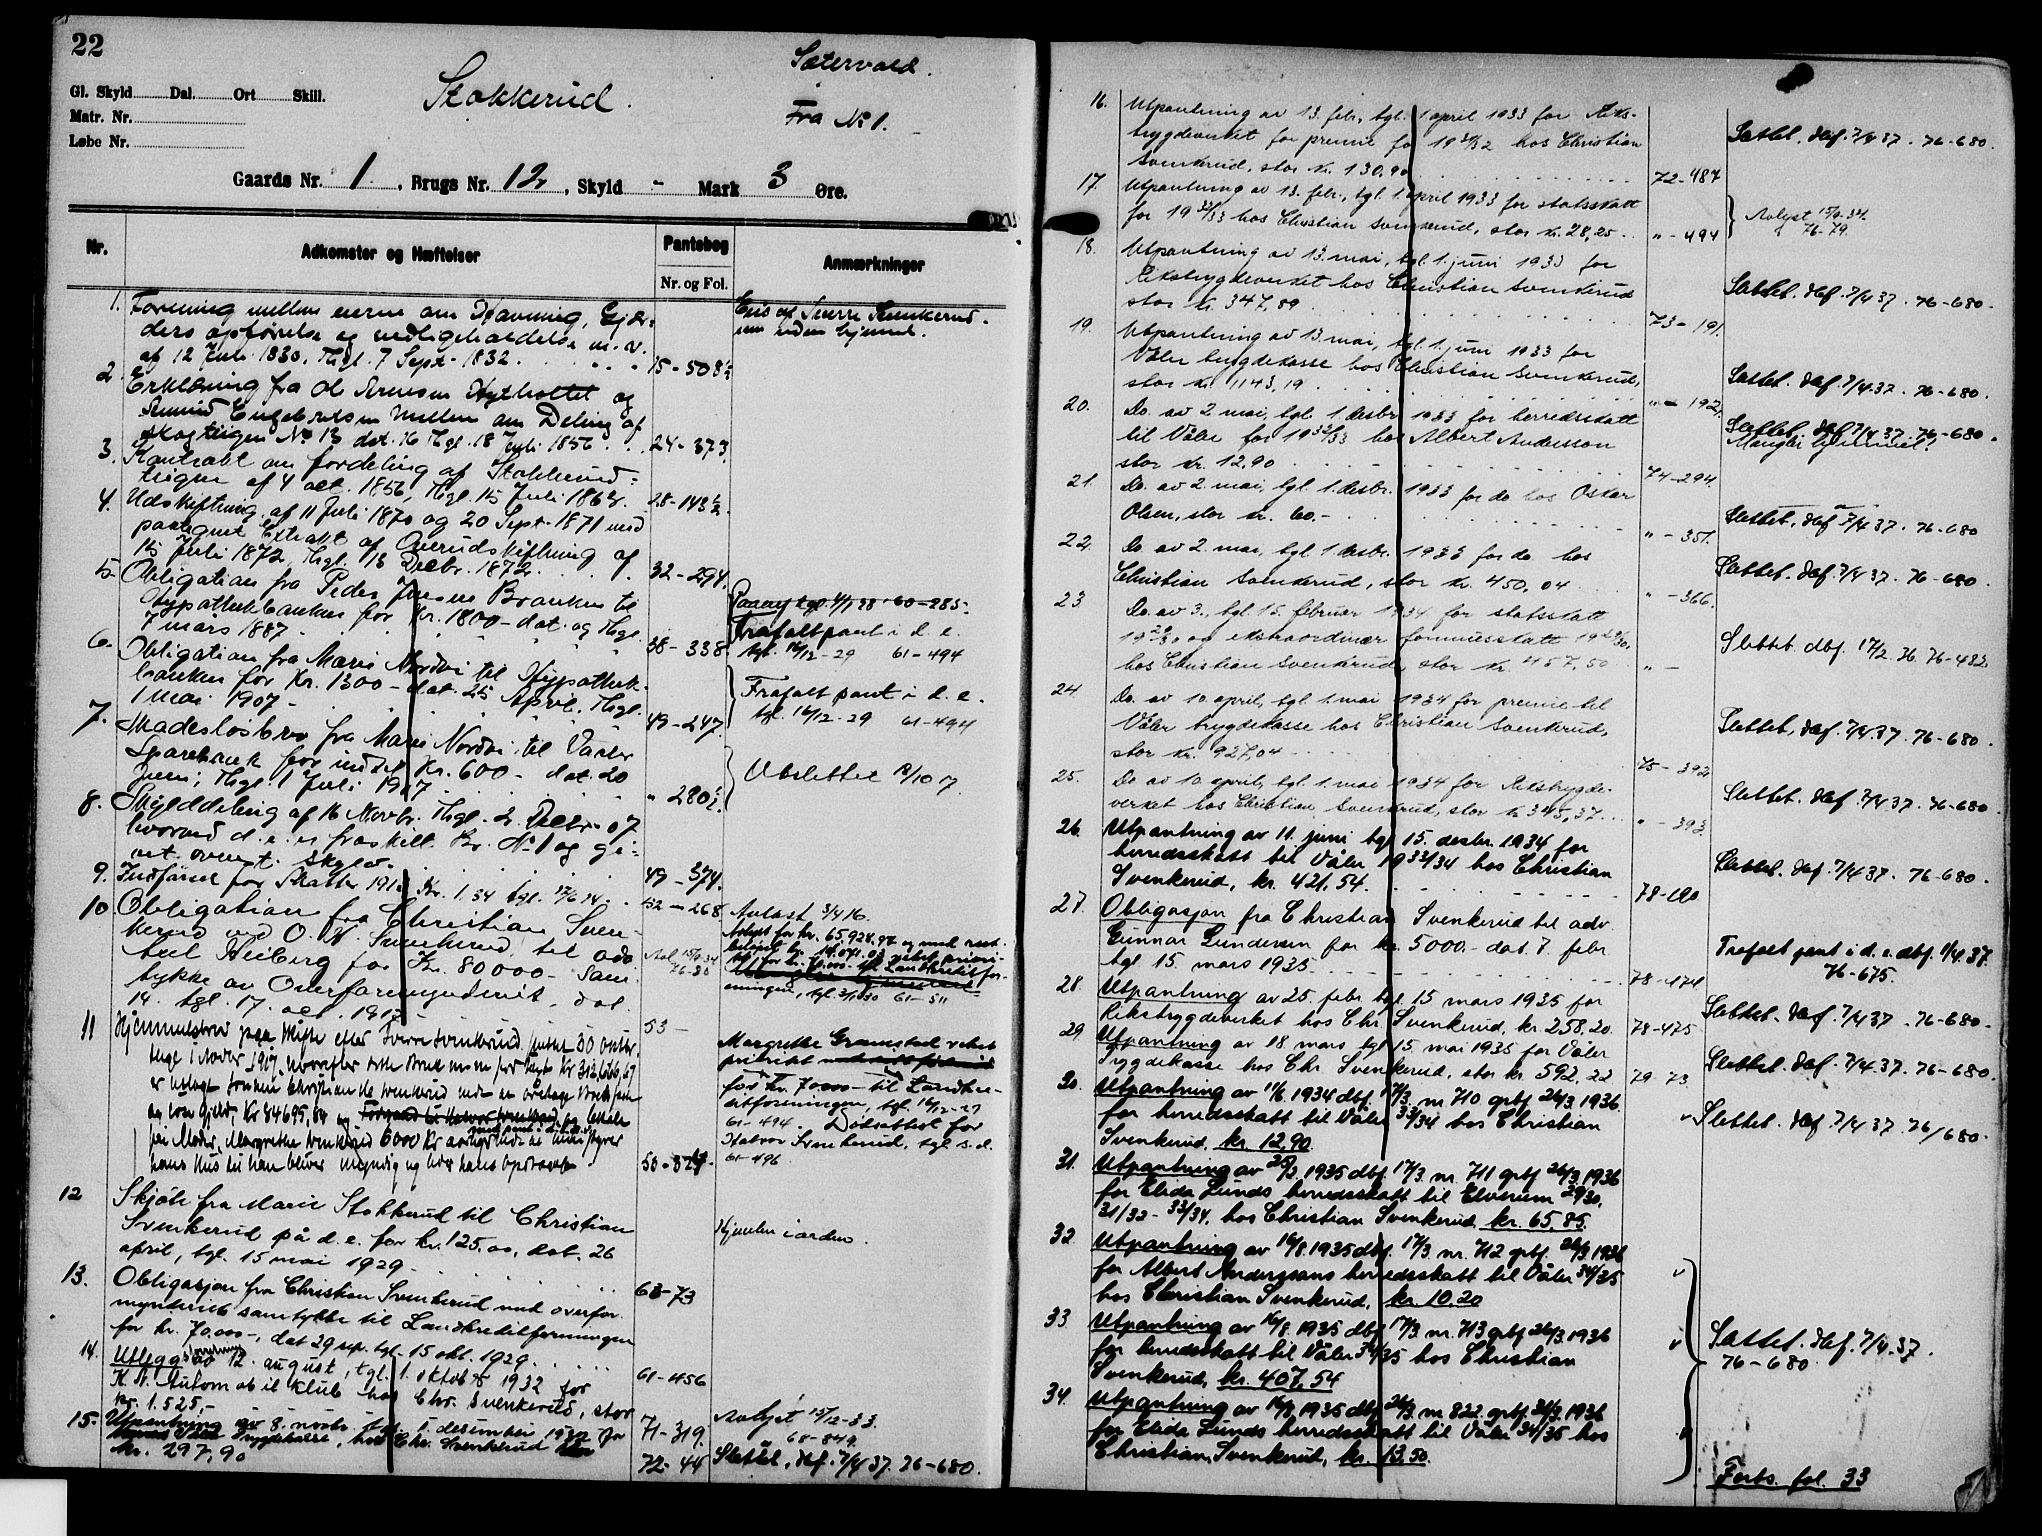 22
Stokkerud.
Sætervold.
Fra No 1.
Gl. Skyld Dal. Ort Skill.
Matr. Nr.
Løbe Nr.
Gaards Nr. 1, Brugs Nr. 12, Skyld - Mark 3 Øre.
Nr. Adkomster og Hæftelser Pantebog Nr. og Fol. Anmærkninger
1. Forening mellem eierne om Havning, Gjær-
ders opførelse og vedligeholdelse m. v.
af 12 Juli 1830, Thgl. 7 Sept. 1832. 15-508½
Eies af Sverre Svenkerud
uden hjemmel.
2. Erklæring fra Ol Arnesen Hytholtet og
Amund Engebretsen Mellem om Deling af
skogteigen No 13 dat. 16 Thgl. 18 Juli 1856 24-373.
3. Kontrakt om fordeling af Stokkerud-
teigen af 4 oct. 1856, Thgl. 15 Juli 1864. 28-143½.
4. Udskiftning af 11 Juli 1870 og 20 Sept. 1871 med
paategnet Extrakt af Overudskiftning af
15 Juli 1872, Thgl. 18 Decbr. 1872. 32-294.
5. Obligation fra Peder Jensen Braaten til
Hypothekbanken for Kr. 1800- dat. og Thgl.
7 mars 1887. 38-338
60-285
Frafalt pant i d. e.
tgl. 16/12-29 61-494
6. Obligation fra Marie Nordvi til Hypothek-
banken for Kr. 1300- dat. 25 April, Thgl.
1 Mai 1907. 49-247.
Frafalt pant i d. e.
tgl. 16/12-29 61-494
7. Skadesløsbrev fra Marie Nordvi til Vaaler
Sparebank for indtil Kr. 600- dat. 20
Juni, Thgl. 1 Juli 1907 " 280½.
Udslettet
8. Skylddeling af 16 Novbr. Thgl. 2. Decbr. 07
hvorved d. e. er fraskilt Br. No 1 og gi-
vet ovenst. Skyld. 49-374.
9. Indførsel for Skatter Kr. 1.54 tgl. 17/6 14. 52-268
Avlæst 3/4 16.
10 Obligation fra Christian Sven-
kerud med O. N. Svenkerud til adv
Axel Heiberg for Kr. 80000- Sam-
tykke av Overformynderiet, dat.
14. tgl. 17. oct. 1917 53-
Avlyst for kr. 65928.97 og med rest-
beløpet kr. 14.071.03 veket priori-
tet for kr. 70.000- til Landkreditfor-
eningen, tgl. 61-511
11 Hjemmelsbrev paa Skifte efter Sverre Svenkerud
Christian Svenkerud
og lovs gjeld, Kr 84695,84 og
sin Moder, Margrethe Svenkerud 6000 Kr aarlig
hans Hus til han bliver myndig 53-327.
Margrethe Gramstad veket
prioritet
for kr. 70.000- til Landkre-
ditforeningen, tgl. 16/12-29
61-494 Dødsattest for
Halvor Svenkerud, tgl. s. d.
61-496.
12 Skjøte fra Marie Stokkerud til Christian
Svenkerud på d. e. for kr. 125.00, dat. 26
april, tgl. 15 mai 1929. 63-73
Hjemlen i orden.
13. Obligasjon fra Christian Svenkerud med overfor-
mynderiets samtykke til Landkreditforeningen
for kr. 70.000-, dat 29 sep. tgl. 15 okt. 1929. 61-456
14. Utlegg 12. august, tgl. 1. oktober 1932 for
K. N. Automobil klub hos Chr. Svenkerud, stor
kr. 1.525,- 71-319.
Avlyst 15/12-33.
68-849.
15. Utpantning av 8. novbr. tgl. 1. desember 1932 for
Våler Trygdekasse, hos Chr. Svenkerud
kr. 297,90 72-44
Slettet, dbf. 7/4 37. 76-680.
16. Utpantning av 13. febr., tgl. 1 april 1933 for Riks-
trygdeverket for premie for 1931/32 hos Christian
Svenkerud, stor kr. 130,90 72-487
Slettet. dbf. 7/4 37. 76-680.
17. Utpantning av 13. febr., tgl. 1. april 1933 for statsskatt
for 1932/33 hos Christian Svenkerud, stor kr. 28,25 "-494
Avlyst 15/9-34.
76-79.
18. Utpantning av 13. mai, tgl. 1. juni 1933 for
Rikstrygdeverket hos Christian Svenkerud
stor kr. 347,89 73-191.
Slettet. dbf. 7/4 37. 76-680.
19. Utpantning av 13 mai, tgl. 1. juni 1933 for
Våler trygdekasse hos Christian Svenkerud,
stor kr. 1143,19 "-192,
Slettet. dbf. 7/4 37. 76-680.
20. Do. av 2. mai, tgl. 1 desbr. 1933 for herredsskatt
til Våler for 1932/33 hos Albert Anderson
stor kr. 12,90 74-294.
Slettet dbf. 7/4 37. 76-680.
Mangler hjemmel!
21. Do. av 2. mai, tgl. 1. desbr. 1933 for do hos Oskar
Olsen, stor kr. 60.- "-351.
Slettet, dbf 7/4 37. 76-680
22. Do av 2. mai, tgl 1 desbr. 1933 for do hos
Christian Svenkerud, stor kr. 450,04 "-366.
Slettet. dbf. 7/4 37. 76-680.
23 Do. av 3., tgl. 15. februar 1934 for statsskatt
og ekstraordinær formuesskatt
hos Christian Svenkerud, stor kr. 457,50 "-
Slettet dbf. 17/2 36. 76-482
24. Do. av 10. april, tgl. 1. mai 1934 for premie til
Våler trygdekasse hos Christian Svenkerud,
stor kr. 927,04 75-392
Slettet, dbf. 7/4 37. 76-680.
25. Do av 10. april, tgl. 1. mai 1934 for Rikstrygde-
verket hos Christian Svenkerud, stor kr 345,37. "-393
Slettet. dbf. 7/4 37. 76-680.
26. Utpantning av 11. juni tgl 15. desbr. 1934 for
herredsskatt til Våler 1933/34 hos Christian
Svenkerud, kr. 421,54.
Slettet. dbf. 7/4 37. 76-680.
27. Obligasjon fra Christian Svenkerud til adv.
Gunnar Gundersen for kr. 5000.- dat. 7. febr.
tgl 15. mars 1935 78-474
Frafalt pant i d. e. dbf. 1/4 37.
76-675.
28. Utpantning av 25. febr. tgl. 15 mars 1935 for
Rikstrygdeverket hos Chr. Svenkerud, kr. 258,20. 78-475
Slettet. dbf 7/4 37. 76-680.
29 Utpantning av 18. mars tgl 15 mai 1935 for Våler
Trygdekasse hos Chr Svenkerud, stor kr. 592,22 79-73
Slettet. dbf. 7/4 37. 76-680.
30. Utpantning av 11/6 1934 dbf. 17/3 nr. 710 grbf 26/3 1936
for herredsskatt til Våler 33/34 hos Christian
Svenkerud, kr. 12,90
Slettet. dbf 7/4 37. 76/680.
31. Utpantning av 25/2 1935 dbf. 17/3 nr. 711 grbf 26/3 1936
for Elida Lunds herredsskatt til Elverum 29/30,
31/32 - 33/34, hos Christian Svenkerud, kr. 65,85.
32. Utpantning av 16/8 1935 dbf. 17/3 nr. 712 grbf. 26/3 1936
for Albert Anderssons herredsskatt til Våler 34/35
hos Christian Svenkerud, kr. 10.20
33 Utpantning av 16/8. 1935 dbf 17/3 nr. 713 grbf 26/3 1936
for herredsskatt til Våler 34/35 hos Christian
Svenkerud, kr. 407,54
Slettet. dbf. 7/4-37.
76-680.
34. Utpantning av 1935 dbf. 26/3 nr 822. grbf. 1936
for Elida Lunds herredsskatt til Våler 34/35 hos
Christian Svenkerud, kr. 13,50.
Forts. fol. 33